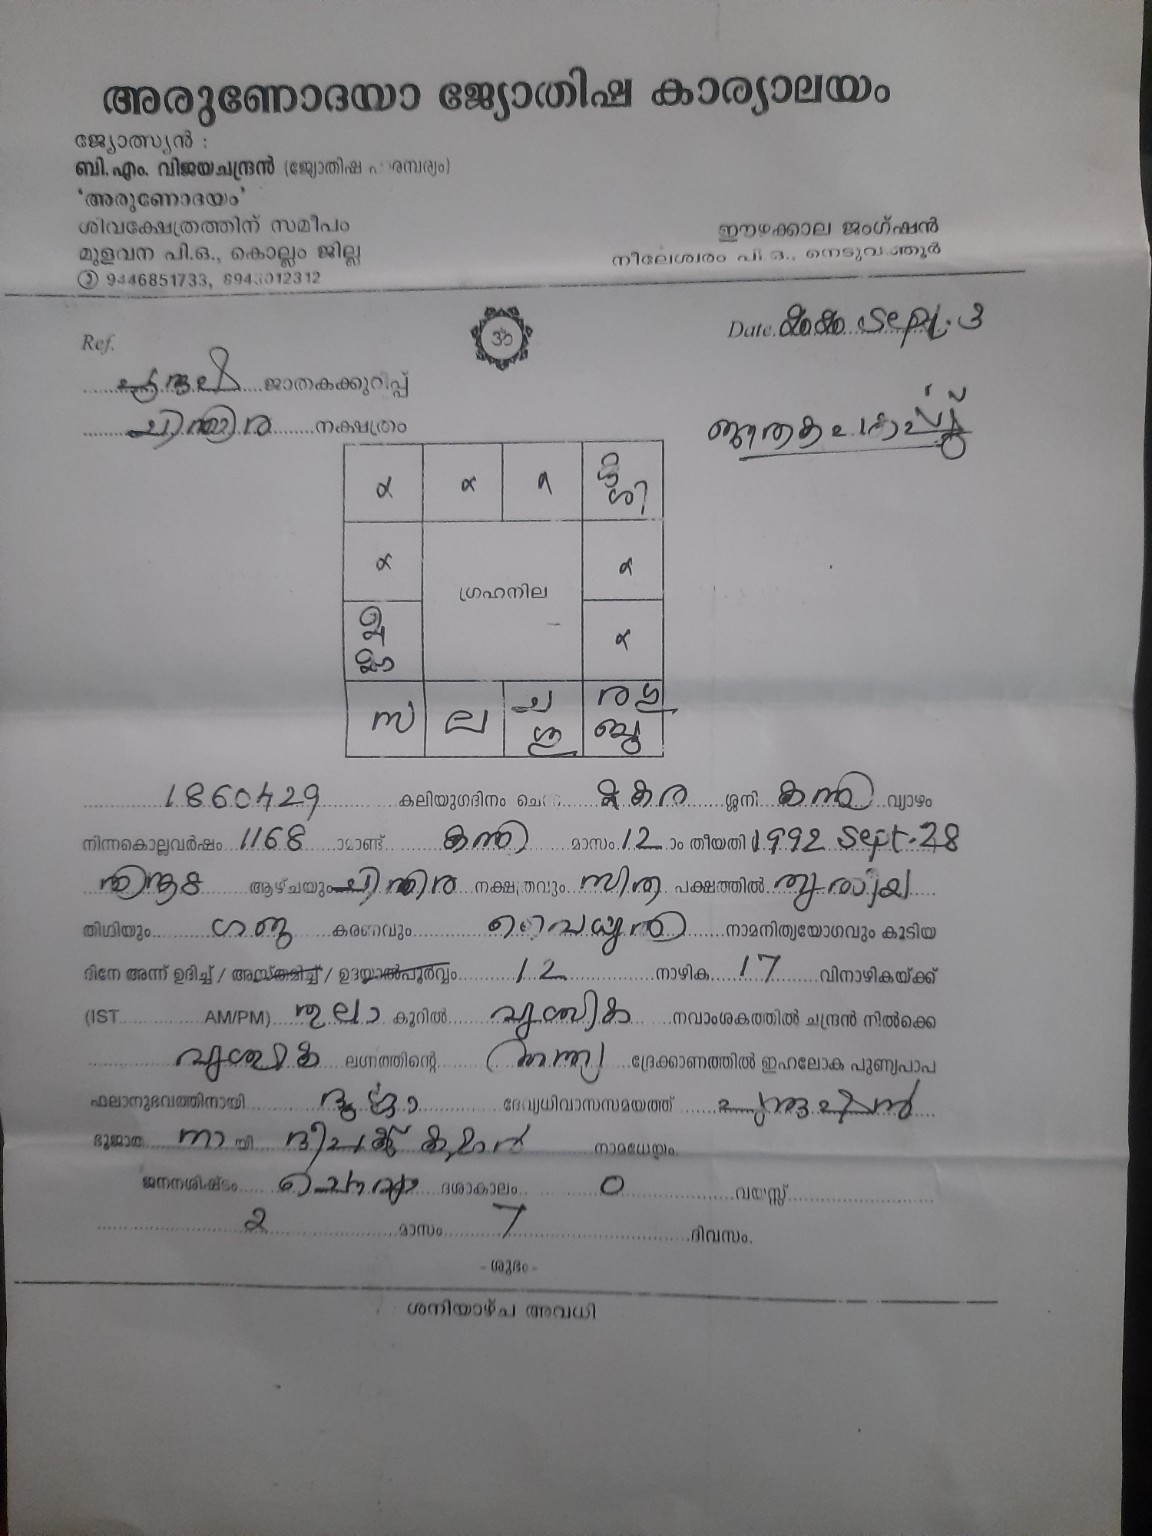 അരുണോദയാ ജ്യോതിഷ കാര്യാലയം
ജ്യോത്സ്യൻ :
ബി.എം. വിജയചന്ദ്രൻ (ജ്യോതിഷ പാരമ്പര്യം)
'അരുണോദയം'
ശിവക്ഷേത്രത്തിന് സമീപം
ഈഴക്കാല ജംഗ്ഷൻ
മുളവന പി.ഒ., കൊല്ലം ജില്ല
നീലേശ്വരം പി.ഒ.,
9446851733,
Ref.
ॐ
Date. Sept. 3
ജാതകക്കുറിപ്പ്
ചിത്തിര നക്ഷത്രം
ഗ്രഹനില
സ ല ച
1860429 കലിയുഗദിനം മകര ശ്ശനി കന്നി വ്യാഴം
നിന്നകൊല്ലവർഷം 1168 ാമാണ്ട് കന്നി മാസം 12 ാം തീയതി 1992 Sept. 28
തിങ്കൾ ആഴ്ചയും ചിത്തിര നക്ഷത്രവും സിത പക്ഷത്തിൽ തൃതീയ
തിഥിയും ഗജ കരണവും വൈധൃതി നാമനിത്യയോഗവും കൂടിയ
ദിനേ അന്ന് ഉദിച്ച് / അസ്തമിച്ച് / ഉദയാൽപൂർവ്വം 12 നാഴിക 17 വിനാഴികയ്ക്ക്
(IST AM/PM) തുലാ കൂറിൽ വൃശ്ചിക നവാംശകത്തിൽ ചന്ദ്രൻ നിൽക്കെ
വൃശ്ചിക ലഗ്നത്തിന്റെ ദ്രേക്കാണത്തിൽ ഇഹലോക പുണ്യപാപ
ഫലാനുഭവത്തിനായി ദേവ്യധിവാസസമയത്ത്
ഭൂജാത നാ യി ദീപക്ക് കുമാർ നാമധേയം.
ജനനശിഷ്ടം ചൊവ്വാ ദശാകാലം 0 വയസ്സ്
2 മാസം 7 ദിവസം.
- ശുഭം -
ശനിയാഴ്ച അവധി